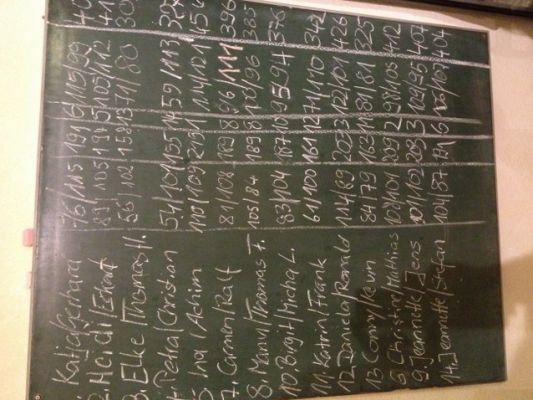 Katja/Gerhard 76/115 191 6 115/99 40
Heidi/Eckart 89/105 194 5 105/112 41
3. Elke/Thomas H. 56/102 158 13 71/80
Petra/Christian 54/101 155 14 59/113
Ina/Achim 110/109 219 1 114/121 454
7. Carmen/Ralf 81/108 189 8 96/111 396
8. Manu/Thomas F. 105/84 189 8 100/96 385
10. Birgit/Micha L. 83/104 187 10 95/94 376
11. Katrin/Frank 61/100 161 12 71/110 342
12. Daniela/Ronald 114/89 203 3 122/101 426
13. Conny/ 84/79 163 11 81/81 325
6. Christine/Matthias 102/101 2 98/105 412
9. Jeannette/Jens 101/102 203 3 109/95 407
14. Jeannette/Stefan 104/87 191 6 106/107 404